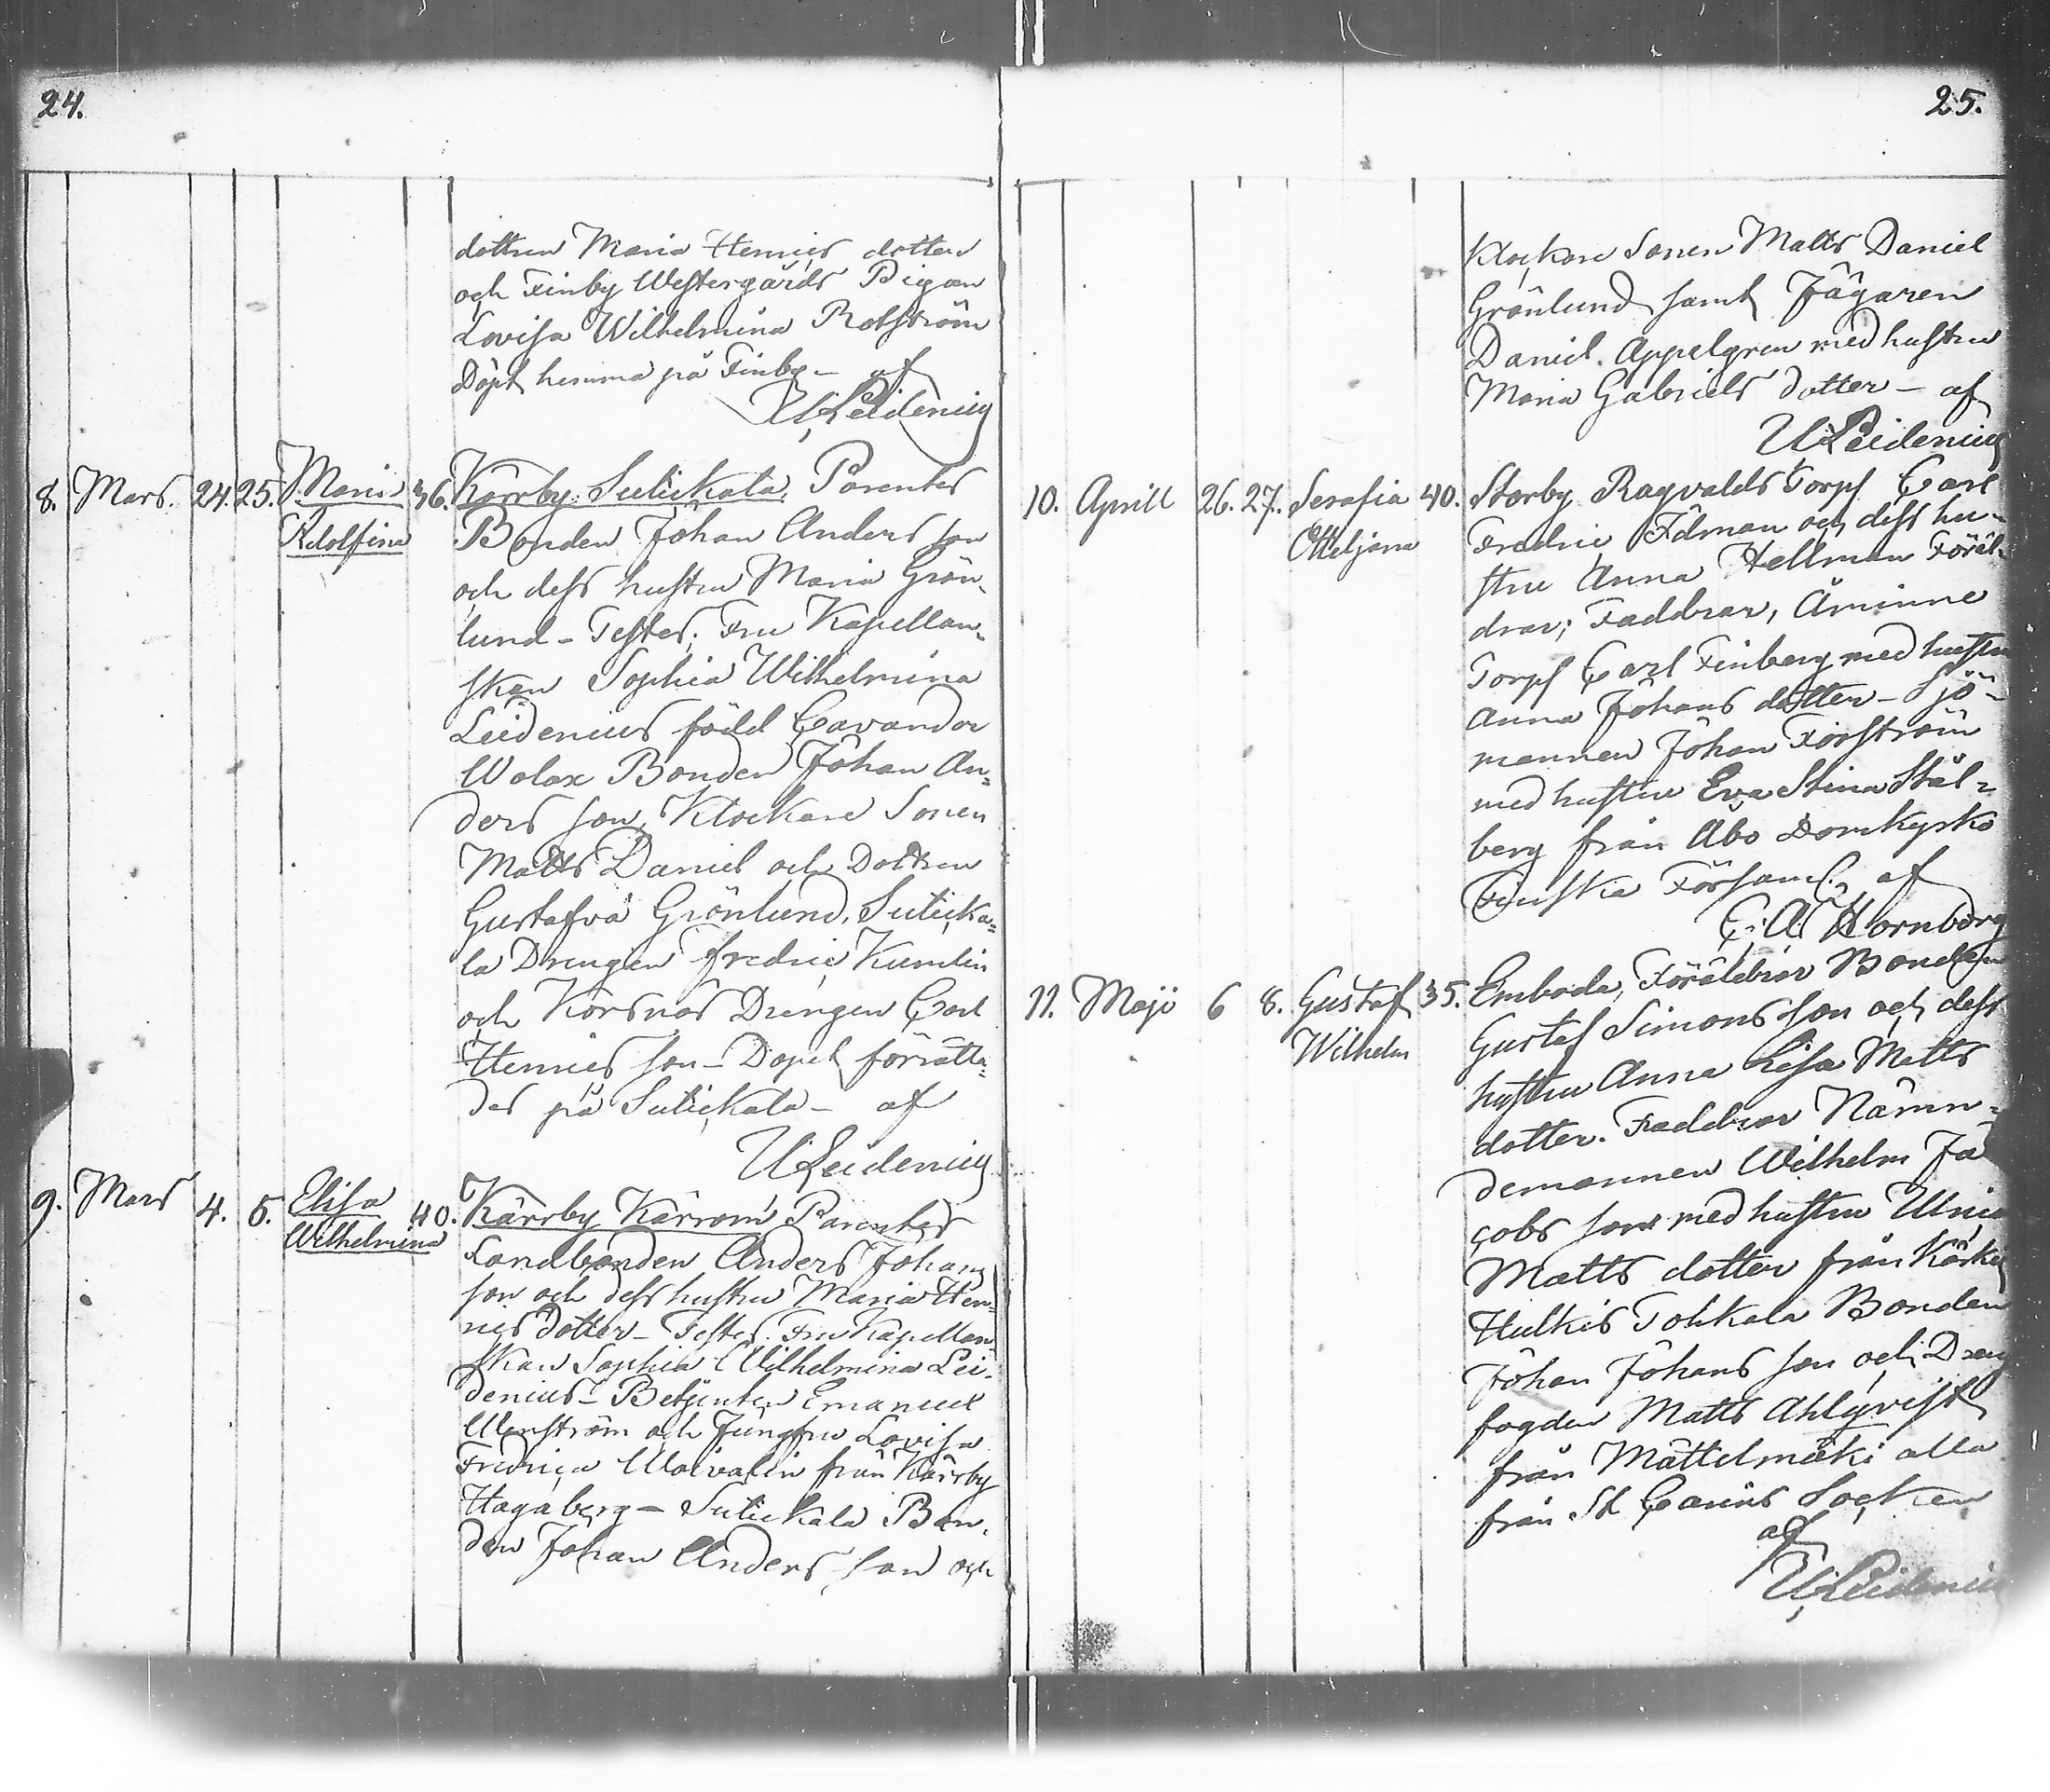 24.
dottren Maria Henrics dotter
och Finby Westergårds Pigan
Lovisa Wilhelmina Rotström
Döpt hemma på Finby – af
U. Leidenius
8. Mars. 24. 25. Maria 36. Kärrby Sutickala. Parentes
Adolfina Bonden Johan Anders son
och dess hustru Maria Grön-
lund – Testes: Fru Kapellan-
skan Sophia Wilhelmina
Leidenius född Cavander
Wolax Bonden Johan An-
ders son, Klockare Sonen
Matts Daniel och Dottren
Gustafva Grönlund, Suticka-
la Drengen Fredric Kumlin
och Korsnäs Drengen Carl
Henrics son – Dopet förrätta-
des på Sutickala – af
U Leidenius
9. Mars 4. 5. Elisa 40. Kärrby Kärrom Parentes
Wilhelmina Landbonden Anders Johans
son och dess hustru Maria Hen-
rics dotter – Testes. Fru Kapellan-
skan Sophia Wilhelmina Lei-
denius – Betjenten Emanuel
och Jungfru Lovisa
Fredrica från Kärrby
Hagaberg – Sutickala Bon-
den Johan Anders son och
25.
Klockare Sonen Matts Daniel
Grönlund samt Jägaren
Daniel Appelgren med hustru
Maria Gabriels dotter – af
U Leidenius
10. Aprill 26. 27. Serafia 40. Storby Ragvalds Torp Carl
Otteljana Fredric Edman och dess hu-
stru Anna Hellman Föräl-
drar; Faddrar, Åminne
Torp Carl Finberg med hustru
Anna Johans dotter – Sjö-
mannen Johan Forsström
med hustru Eva Stina Stål-
berg från Åbo Domkyrko
Finska Församl. af
C. A. Hornborg
11. Maji 6 8. Gustaf 35. Emboda, Föräldrar Bonden
Wilhelm Gustaf Simons son och dess
hustru Anna Lisa Matts
dotter. Faddrar Nämn-
demannen Wilhelm Ja
cobs son med hustru Ulrica
Matts dotter från Kärkis
Hulkis Tohkala Bonden
Johan Johans son och Dreng
fogden Matts Ahlqvist
från Mättelmäki alla
från St Carins Socken
af
U Leidenius